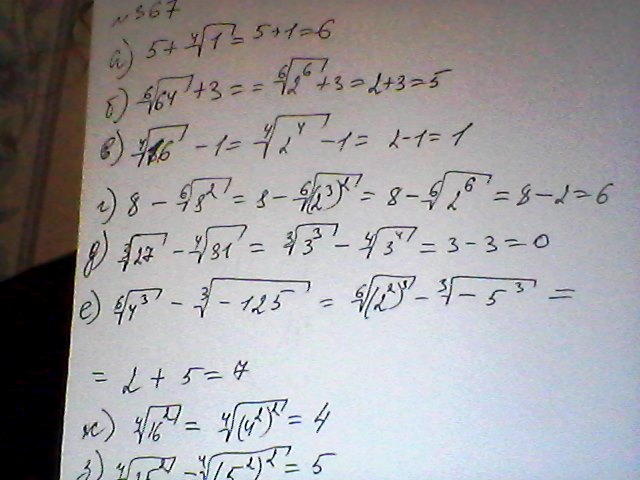 №367
а) 5 + ⁴√1 = 5 + 1 = 6
б) ⁶√64 + 3 = = ⁶√2⁶ + 3 = 2 + 3 = 5
в) ⁴√16 - 1 = ⁴√2⁴ - 1 = 2 - 1 = 1
г) 8 - ⁶√8² = 8 - ⁶√(2³)² = 8 - ⁶√2⁶ = 8 - 2 = 6
д) ³√27 - ⁴√81 = ³√3³ - ⁴√3⁴ = 3 - 3 = 0
е) ⁶√4³ - ³√-125 = ⁶√(2²)³ - ³√-5³ =
= 2 + 5 = 7
ж) ⁴√16² = ⁴√(4²)² = 4
з) ⁴√25² - ⁴√(5²)² = 5